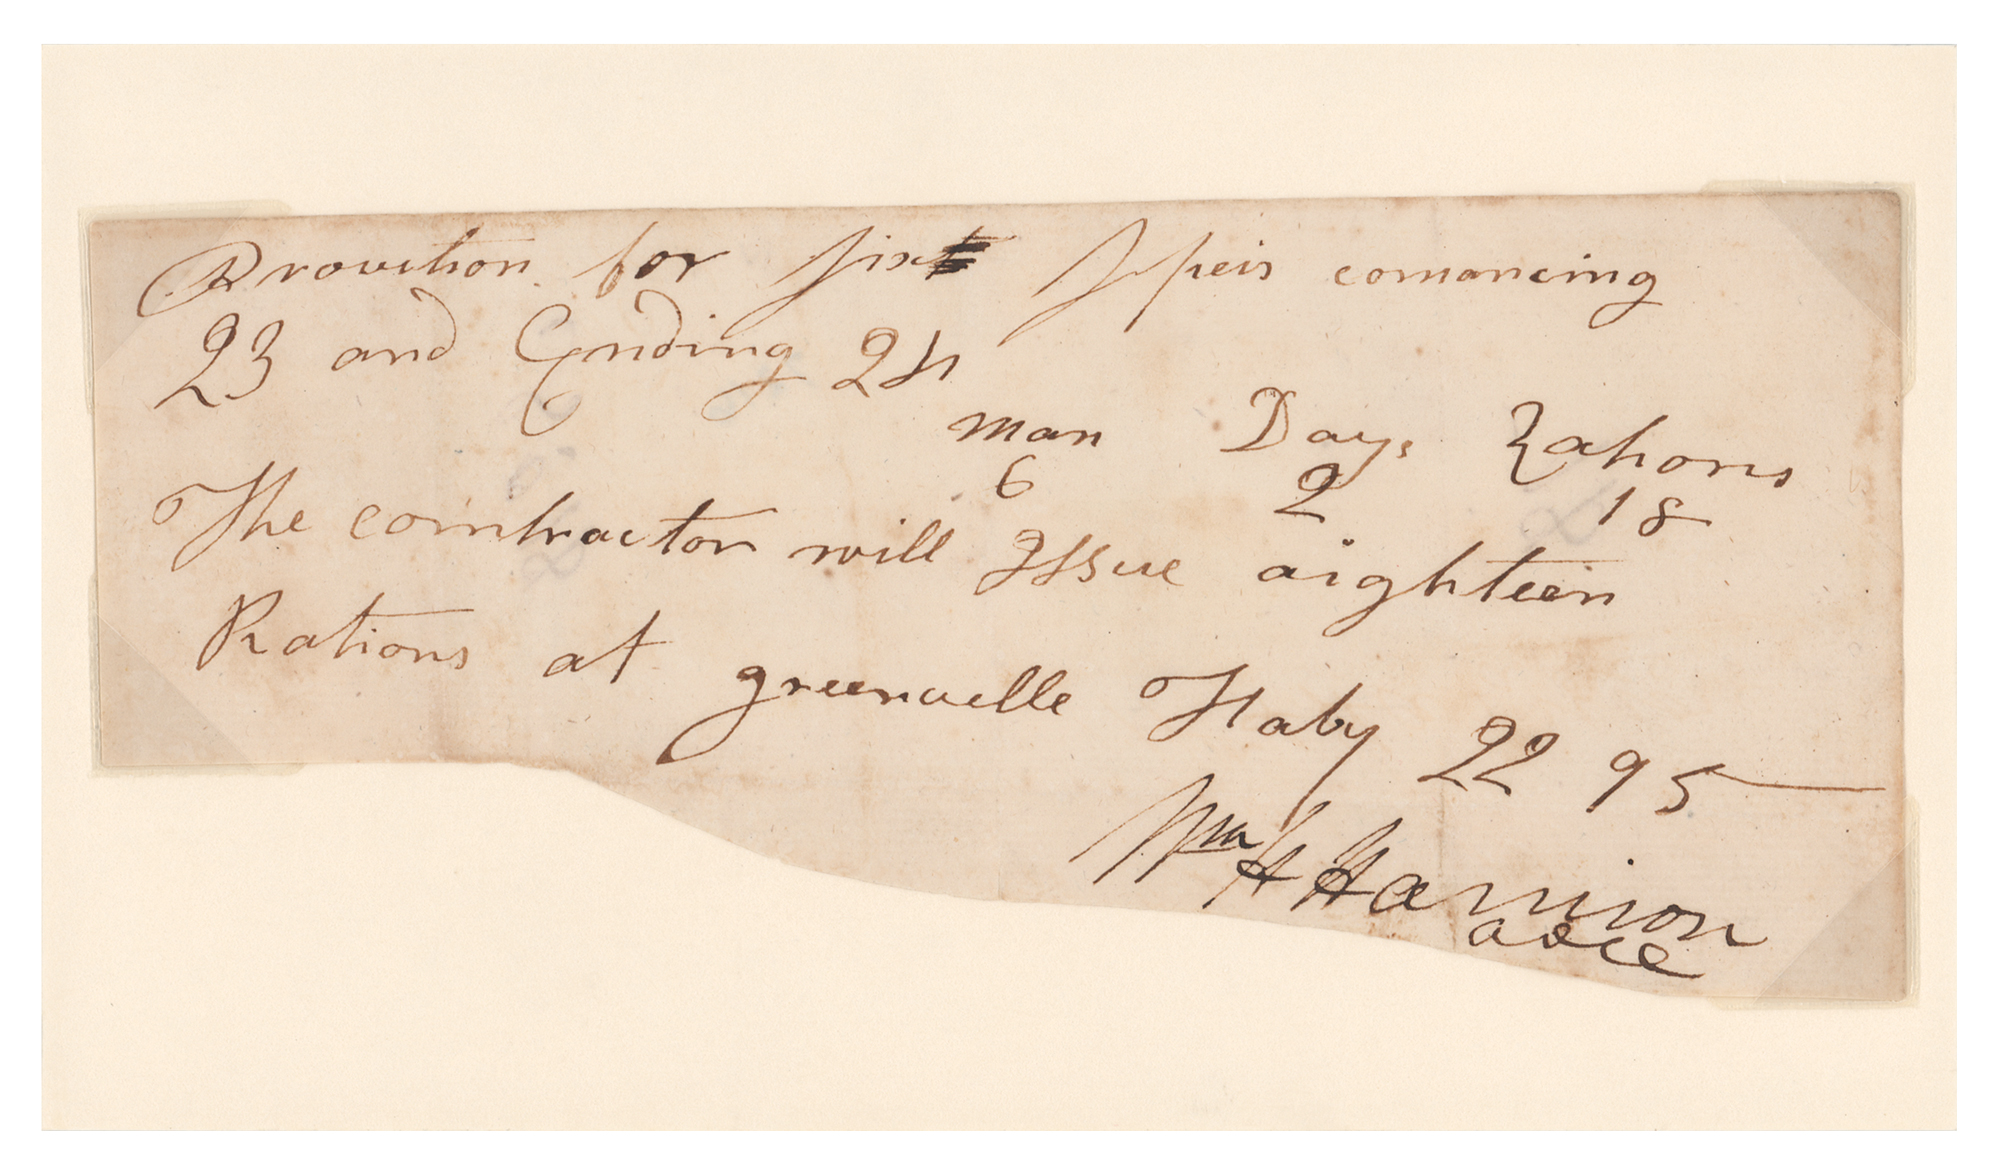 Provition for six Speis comancing
23 and Ending 24
man Days Rations
6 2 18
The comtractor will Issue aighteen
Rations at greenvelle Faby 22 95
Wm H Harrison
adce